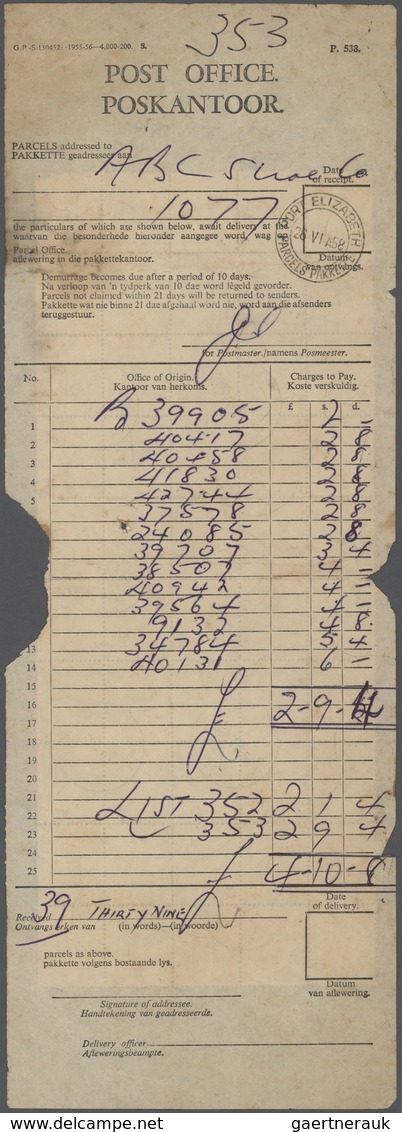 353
G.P.-S.130452--1955-56—4,000-200. S. P. 538.
POST OFFICE.
POSKANTOOR.
PARCELS addressed to
PAKKETTE geadresseer aan
ABC Shoe Co
Date
of receipt.
1077
PORT ELIZABETH
26 VI A58
PARCELS PAKKETTE
the particulars of which are shown below, await delivery at the
waarvan die besonderhede hieronder aangegee word, wag
Parcel Office.
aflewering in die pakkettekantoor.
Datum
van ontvangs.
Demurrage becomes due after a period of 10 days.
Na verloop van 'n tydperk van 10 dae word lêgeld gevorder.
Parcels not claimed within 21 days will be returned to senders.
Pakkette wat nie binne 21 dae afgehaal word nie, word aan die afsenders
teruggestuur.
for Postmaster./namens Posmeester.
No. Office of Origin. Charges to Pay.
Kantoor van herkoms. Koste verskuldig.
£ s. d.
1 39905 2 1
2 40417 2 8
3 40458 2 8
4 41830 2 8
5 42744 2 8
37578 2 8
24085 2 8
39707 3 4
38507 4 1
40942 4 1
39564 4 1
9132 4 8
13 34784 5 4
14 40131 6 1
15
16 £ 2-9-4
17
18
19
20
21 LIST 352 2 1 4
22
23 353 2 9 4
24
25 £ 4-10-8
39 THIRTY NINE
Received
Ontvangs erken van (in words)—(in woorde)
Date
of delivery.
parcels as above.
pakkette volgens bostaande lys.
Datum
van aflewering.
Signature of addressee.
Handtekening van geadresseerde.
Delivery officer
Afleweringsbeampte.
www.stampcircuit.com gaertnerauk